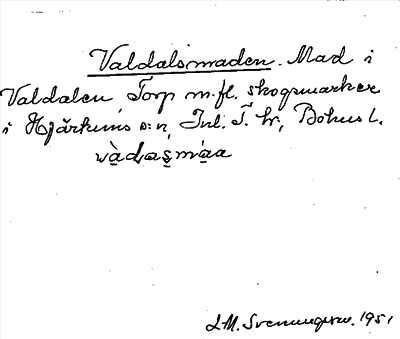 Valdalsmaden. Mad i
Valdalen, Torp m. fl. skogsmarker
i Hjärtums s:n, Inl. T. hr, Bohus l.
vàdas̱màa
J.M. Svenningsson. 1951